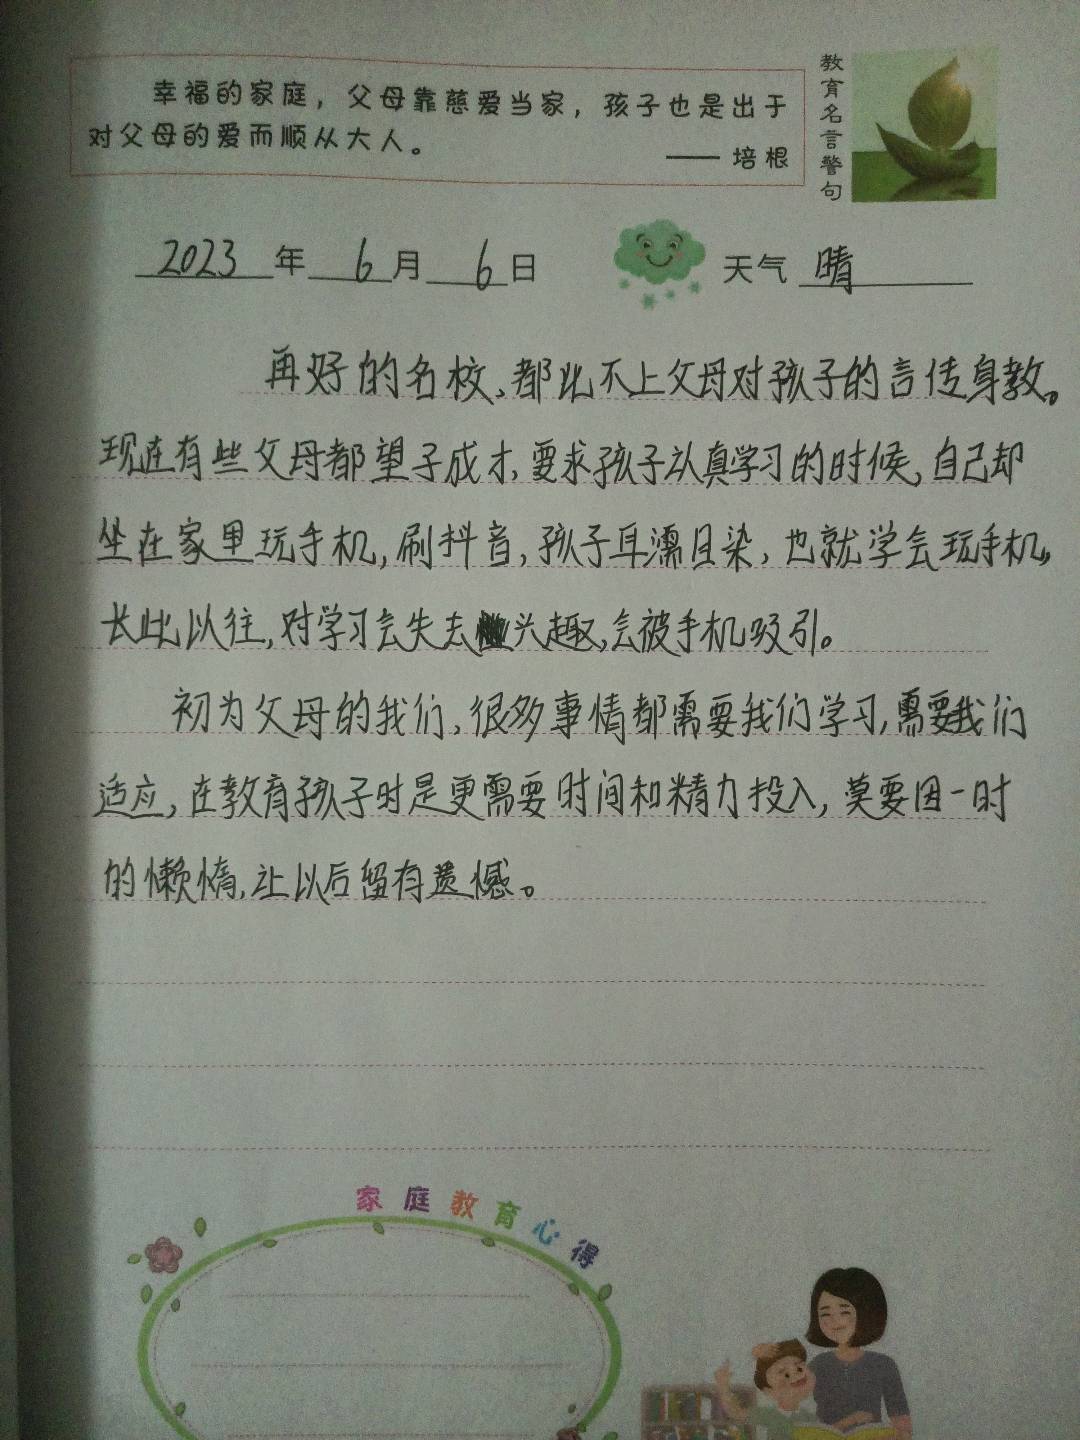 幸福的家庭，父母靠慈爱当家，孩子也是出于
对父母的爱而顺从大人。
—— 培根
教育名言警句
2023年6月6日 天气 晴
再好的名校、都比不上父母对孩子的言传身教。
现在有些父母都望子成才,要求孩子认真学习的时候,自己却
坐在家里玩手机,刷抖音,孩子耳濡目染,也就学会玩手机,
长此以往,对学习会失去兴趣,会被手机吸引。
初为父母的我们,很多事情都需要我们学习,需要我们
适应,在教育孩子时是更需要时间和精力投入,莫要因一时
的懒惰,让以后留有遗憾。
家庭教育心得